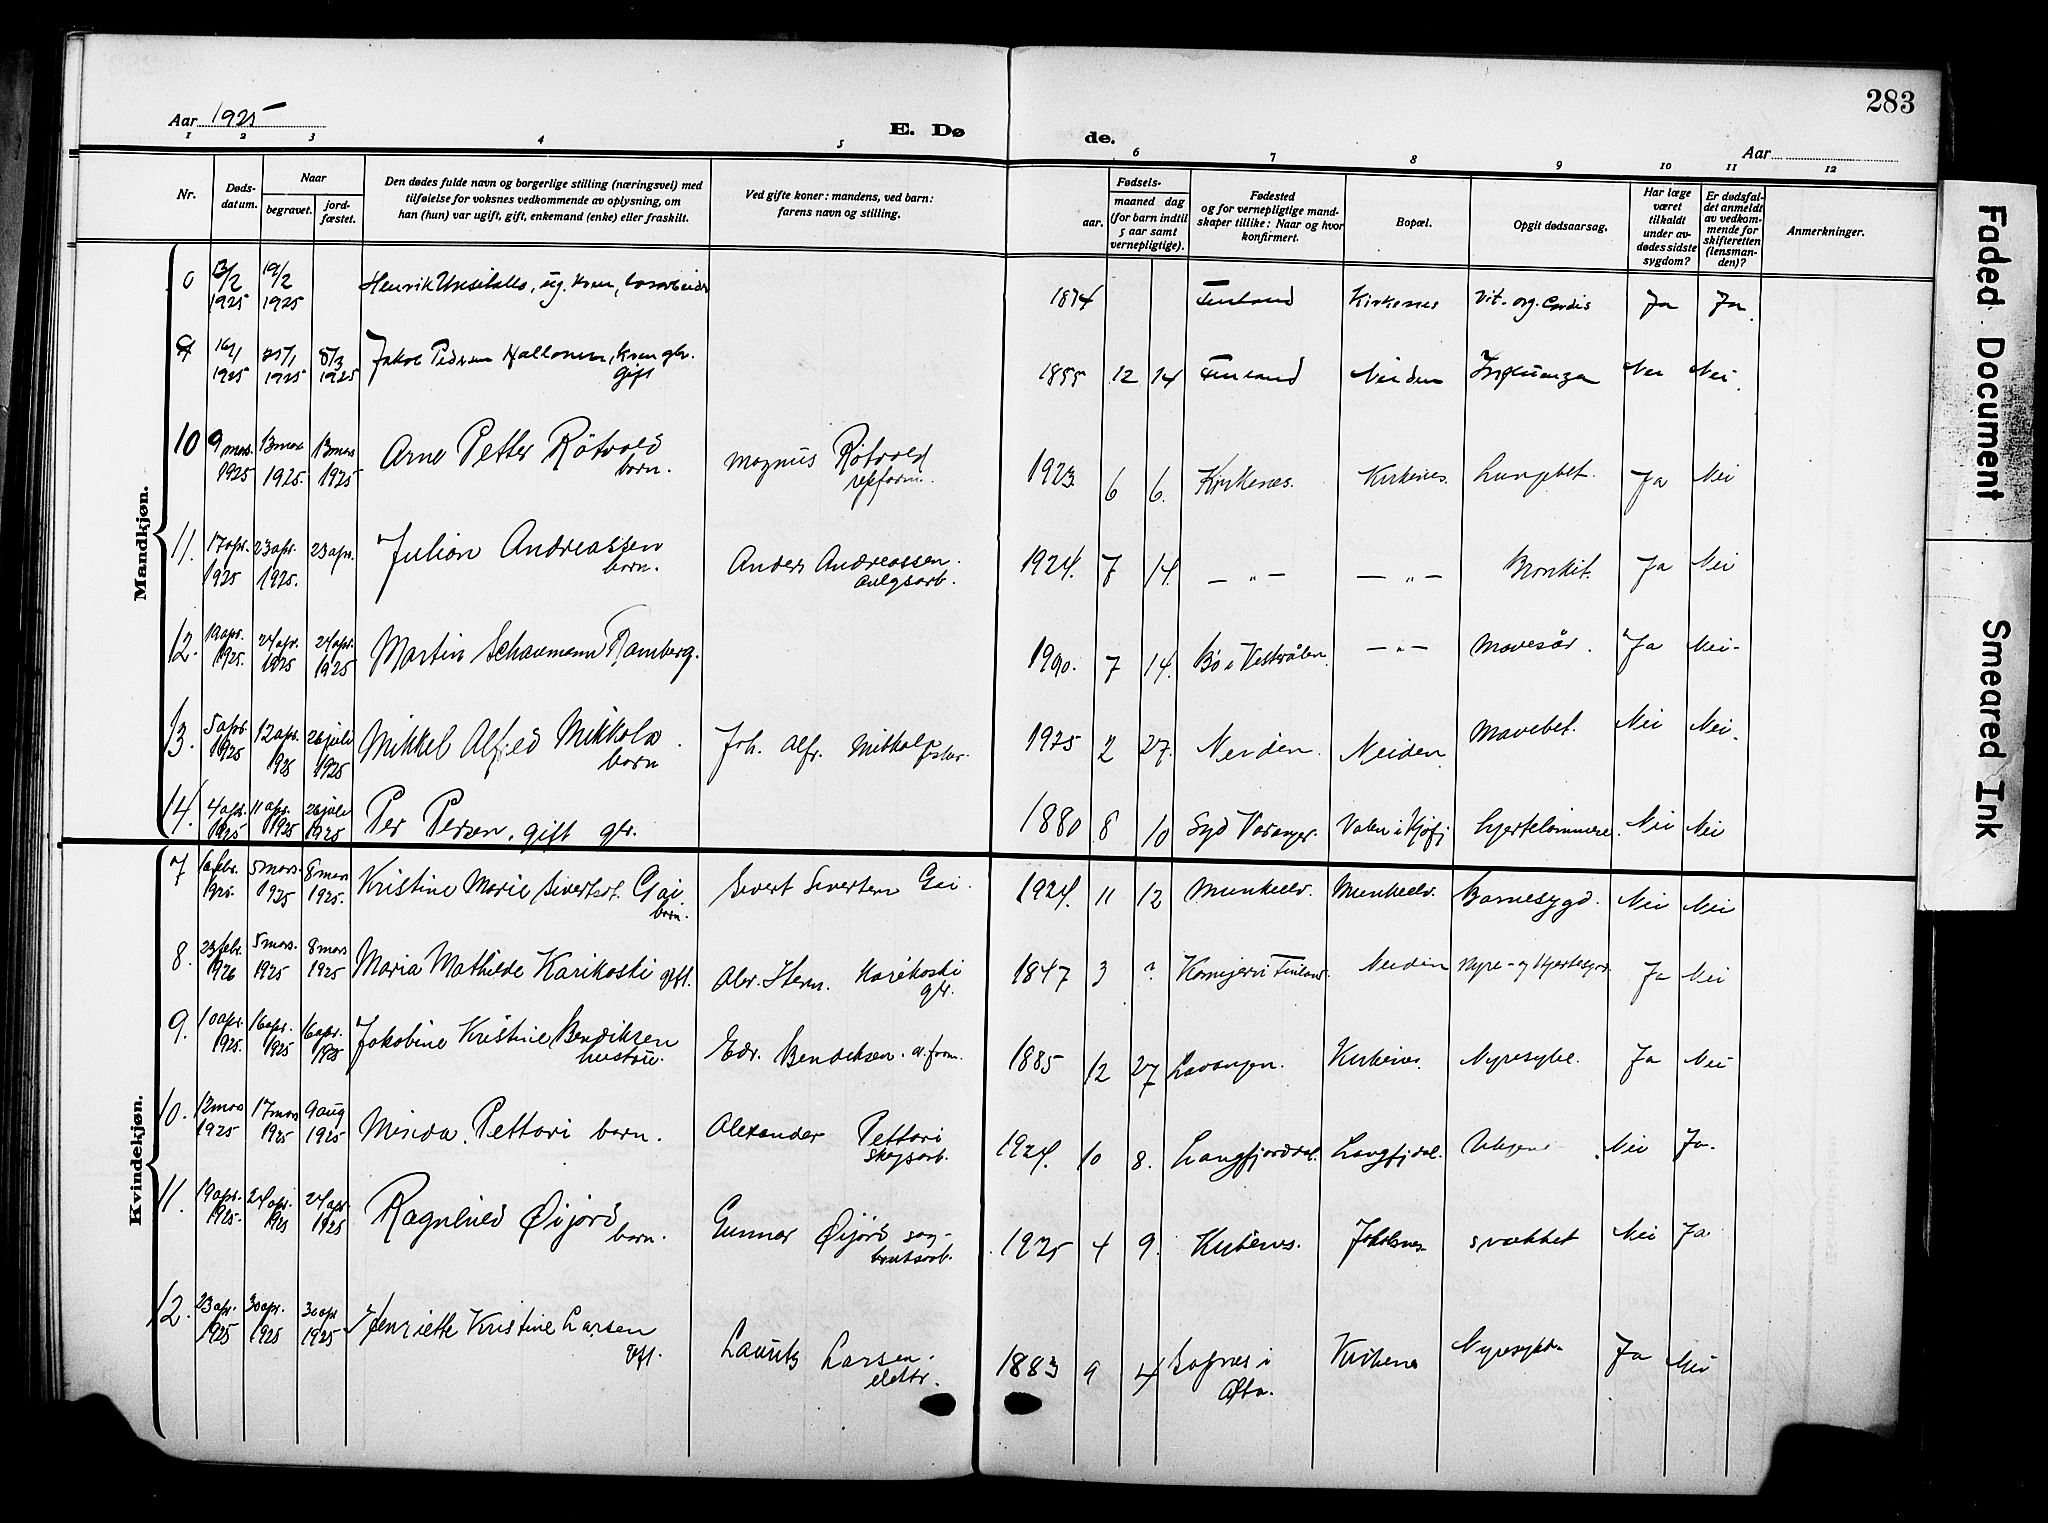 283
Aar 1925
E. Dø de.
Aar
1 2 3 4 5 6 7 8 9 10 11 12
Nr.
Døds-
datum.
Naar
begravet.
jord-
fæstet.
Den dødes fulde navn og borgerlige stilling (næringsvei) med
tilføielse for voksnes vedkommende av oplysning, om
han (hun) var ugift, gift, enkemand (enke) eller fraskilt.
Ved gifte koner: mandens, ved barn:
farens navn og stilling.
Fødsels-
aar.
maaned dag
(for barn indtil
5 aar samt
vernepligtige).
Fødested
og for vernepligtige mand-
skaper tillike: Naar og hvor
konfirmert.
Bopæl.
Opgit dødsaarsag.
Har læge
været
tilkaldt
under av-
dødes sidste
sygdom?
Er dødsfal-
det anmeldt
av vedkom-
mende for
skifteretten
(lensman-
den)?
Anmerkninger.
Mandkjøn.
13/2 1925 19/2 1925 Henrik ug. kven, 1874 Finland Kirkenes Vit. org. Cordis Ja Ja.
9 1925 1925 8/3 1925 Jakob Pedersen kven gbr. gift 1855 12 14 Finland Neiden Nei Nei.
10 9 mars 1925 13 mars 1925. 13 mars 1925 Arne Petter Røtvold barn. Magnus Røtvold 1923. 6 6. Kirkenes. Kirkenes. Lungebet. Ja Nei
11. 17 apr. 1925 23 apr. 1925. 23 apr. Julian Andreassen barn. Anders Andreassen. anlgsarb. 1924. 7 14. — „ — — „ — Bronkit. Ja Nei
12. 19 apr. 1925. 24 apr. 1925 24 apr. 1925 Martin Schaumann Ramberg. 1990. 7 14. Bø i Vesterålen. — „ — Mavesår. Ja Nei.
13. 5 apr. 1925 12 apr. 1925 26 juli 1925 Mikkel Alfred Mikkola. barn Joh. Alfr. Mikkola 1925 2 27. Neiden. Neiden Mavebet. Nei Nei.
14. 4 apr. 1925 11 apr. 1925 26 juli 1925 Per Persen, gift gbr. 1880 8 10 Syd Varanger. Valen i Kjøfj Hjertelammelse. Nei Nei
Kvindekjøn.
7 16 febr. 1925. 5 mars 1925 8 mars 1925. Kristine Marie Sivertsd. Gai. barn. Sivert Sivertsen Gai. 1924. 11 12 Munkelv. Munkelv. Barnesygd. Nei Nei
8. 23 febr. 1926 5 mars. 1925 8 mars 1925 Maria Mathilde Karikoski gift. Abr. Herm. Karikoski gbr. 1847 3 ? Kemijervi Finland Neiden Nyre- og Hjertesyd. Ja Nei
9. 10 apr. 1925. 16 apr. 1925 16 apr. 1925 Jakobine Kristine Bendiksen hustru. Edv. Bendiksen. a. form. 1885 12 27 Lavangen. Kirkenes. Nyresyke. Ja Nei
10. 12 mars 1925 17 mars 1925 9 aug 1925 Minda. Pettari barn. Alexander Pettari skogsarb. 1924. 10 8. Langfjorddal. Langfjdal. Nei Ja.
11. 19 apr. 1925. 24 apr. 1925 24 apr. 1925 Ragnhild Øijord barn. Gunnar Øijord sag- bruksarb. 1925 4 9. Kirkenes. Jakobsnes svakhet Nei Ja
12. 23 apr. 1925 30 apr. 1925 30 apr 1925 Henriette Kristine Larsen gft. Lauritz Larsen. elektr. 1883 9 4 Bognes i Alta. Kirkenes Nyresykd. Ja Nei
Faded Document Smeared Ink